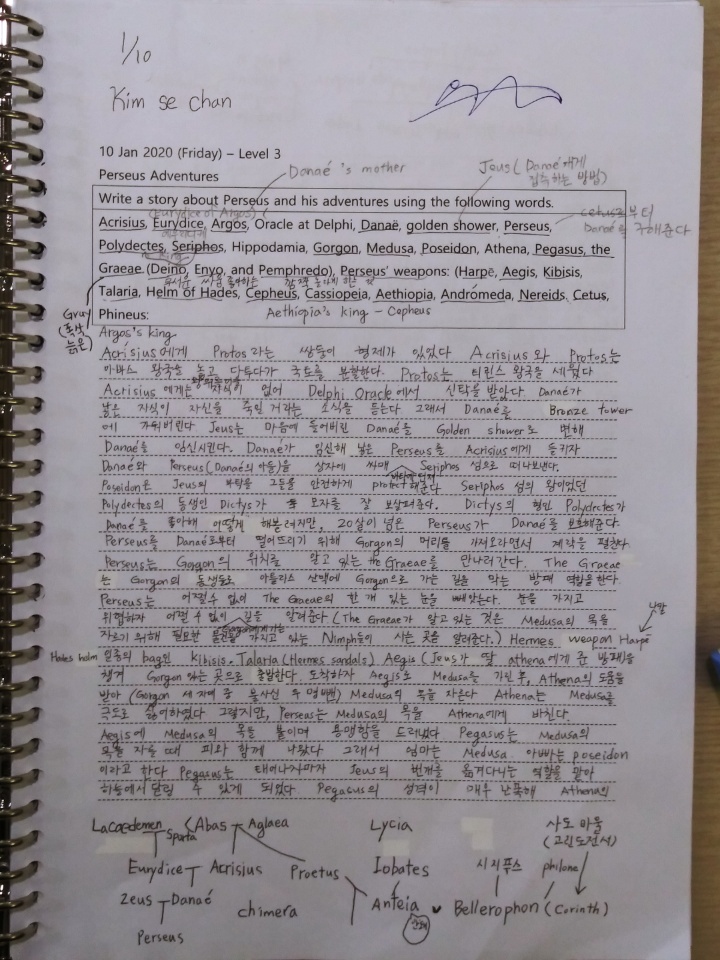 1/10
Kim se chan
10 Jan 2020 (Friday) – Level 3
Danaé's mother
Jeus (Danaé에게
접촉하는 방법)
Perseus Adventures
Write a story about Perseus and his adventures using the following words.
(Eurydice of Argos)
Acrisius, Eurydice, Argos, Oracle at Delphi, Danaë, golden shower, Perseus,
cetus로부터
Danaé를 구해준다
Polydectes, Seriphos, Hippodamia, Gorgon, Medusa, Poseidon, Athena, Pegasus, the
Graeae (Deino, Enyo, and Pemphredo), Perseus' weapons: (Harpe, Aegis, Kibisis,
Talaria, Helm of Hades, Cepheus, Cassiopeia, Aethiopia, Andromeda, Nereids, Cetus,
Phineus:
Aethiopia's king - Cepheus
Gray
(폭삭
늙은)
Argos's king
Acrisius에게 Protos라는 쌍둥이 형제가 있었다 Acrisius와 Protos는
아바스 왕국을 놓고 다투다가 국토를 분할한다. Protos는 티린스 왕국을 세웠다
Acrisius에게는 자식이 없어 Delphi Oracle에서 신탁을 받았다 Danaé가
낳은 자식이 자신을 죽일 거라는 소식을 듣는다 그래서 Danaé를 Bronze tower
에 가둬버린다 Jeus는 마음에 들어버린 Danaé를 Golden shower로 변해
Danaé를 임신시킨다. Danaé가 임신해 낳은 Perseus를 Acrisius에게 들키자
Danaé와 Perseus(Danaé의 아들)을 상자에 싸매 Seriphos 섬으로 떠나보낸다.
Poseidon은 Jeus의 부탁을 그들을 안전하게 protect해준다 Seriphos 섬의 왕이었던
Polydectes의 동생인 Dictys가 두 모자를 잘 보살펴준다. Dictys의 형인 Polydectes가
Danaé를 좋아해 어떻게 해볼려지만, 20살이 넘은 Perseus가 Danaé를 보호해준다.
Perseus를 Danaé로부터 떨어뜨리기 위해 Gorgon의 머리를 가져오라면서 계략을 펼친다.
Perseus는 Gorgon의 위치를 알고 있는 the Graeae를 만나러간다. The Graeae
는 Gorgon의 동생들로 아틀라스 산맥에 Gorgon으로 가는 길을 막는 방패 역할을 한다.
Perseus는 어쩔수 없이 The Graeae의 한 개 있는 눈을 빼앗는다. 눈을 가지고
위협하자 어쩔 수 없이 길을 알려준다 (The Graeae가 알고 있는 것은 Medusa의 목을
자르기 위해 필요한 물건들을 가지고 있는 Nimph들이 사는 곳을 알려준다.) Hermes weapon Harpé
낫
Hades holm 일종의 bag인 Kibisis. Talaria (Hermes sandals) Aegis (Jeus가 딸 athena에게 준 방패)를
챙겨 Gorgon 있는 곳으로 출발한다. 도착하자 Aegis로 Medusa를 가린 후, Athena의 도움을
받아 (Gorgon 세 자매 중 불사신 두 명 빼) Medusa의 목을 자른다 Athena는 Medusa를
극도로 싫어하였다 그렇지만, Perseus는 Medusa의 목을 Athena에게 바친다.
Aegis에 Medusa의 목을 붙이며 용맹함을 드러냈다 Pegasus는 Medusa의
목을 자를 때 피와 함께 나왔다 그래서 엄마는 Medusa 아빠는 poseidon
이라고 한다 Pegasus는 태어나자마자 Jeus의 번개를 옮겨다니는 역할을 맡아
하늘에서 달릴 수 있게 되었다. Pegasus의 성격이 매우 난폭해 Athena의
Lacaedemen
Sparta
Abas
Aglaea
Lycia
사도 바울
(고린도전서)
Eurydice
Acrisius
Proetus
Iobates
시지푸스
philone
Zeus
Danaé
chimera
Anteia
안테
Bellerophon (Corinth)
Perseus